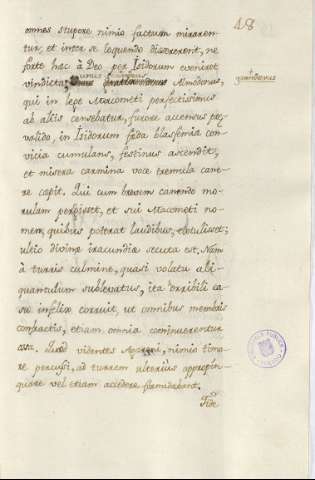 48
omnes stupore nimio factum mirarentur
tur, et inter se loquendo dissererent, ne
forte hæc à Deo per Isidorum eveniret
vindicta; Almodenus, quamdenus
qui in lege Macometi perfectissimus
ab aliis censebatur, furore accensus
valido, in Isidorum fæda blasfemia con
vicia cumulans, festinus ascendit,
et misera carmina voce tremula canta-
re cœpit. Qui cum brevem canendo mo-
rulam perfecisset, et sui Macometi no-
men, quibus poterat laudibus, extulisset;
ultio divinæ iracundiæ secuta est. Nam
à turris culmine, quasi volatu ali-
quantulum sublevatus, ita orribili ca-
su infelix corruit, ut omnibus membris
confractis, etiam omnia comminuerentur
ossa. Quod videntes Agareni, nimio timo-
re percussi, ad turrem ulterius appropin-
quare vel etiam accedere formidabant.
Fide